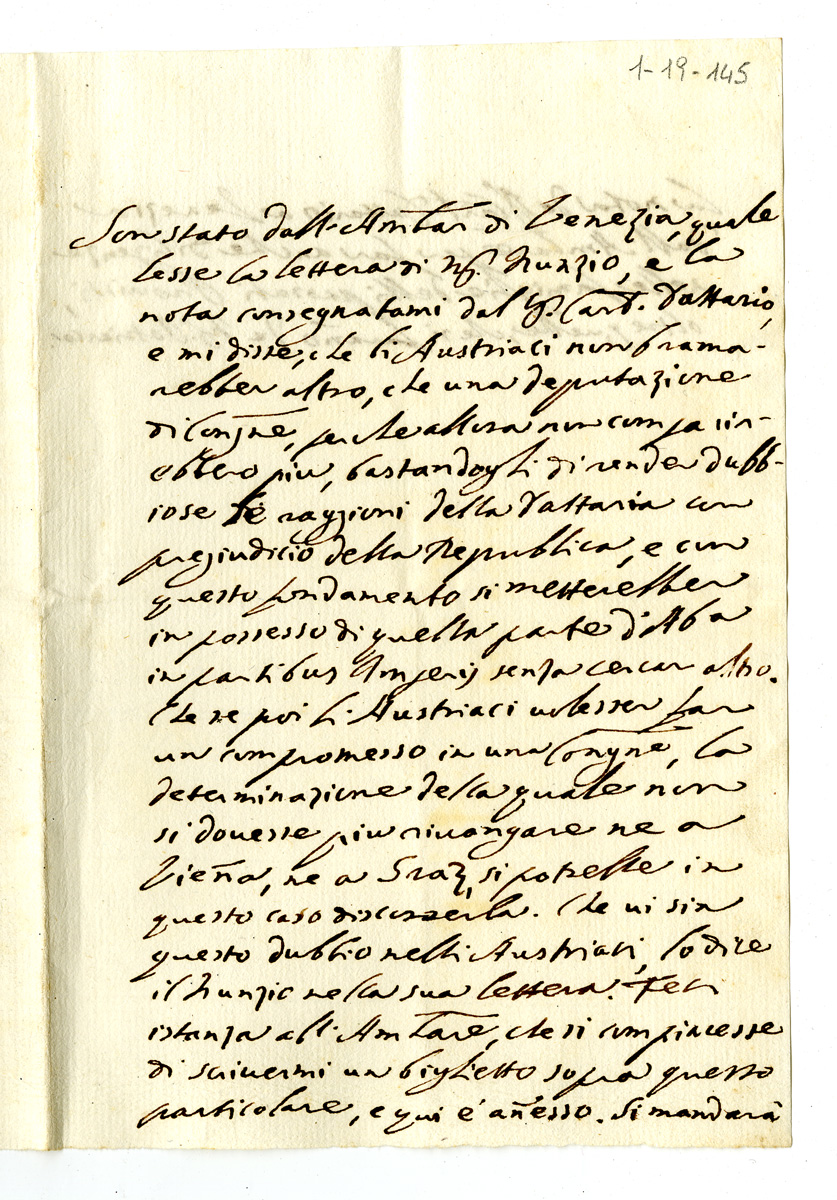 1-19-145
Son stato dall'Ambar di Venezia, quale
lesse la lettera di Mr. Nunzio, e la
nota consegnatami dal Sr. Card. Dattario,
e mi disse, che li Austriaci non brama-
rebber altro, che una deputazione
di Congne, perche allora non comparir-
ebbero piu, bastandogli di render dubb-
iose le raggioni della Dattaria con
pregiudicio della Republica, e con
questo fondamento si metterebber
in possesso di quella parte d'Aba
in partibus Imperij senza cercar altro.
Che se poi li Austriaci volesser far
un compromesso in una Congne, la
determinazione della quale non
si dovesse piu rivangare ne a
Vieña, ne a Graz, si potrebbe in
questo caso discorrerla. Che vi sin
questo dubbio nelli Austriaci, lo dice
il Nunzio nella sua lettera. Feci
istanza all'Ambare, che si compiacesse
di scrivermi un biglietto sopra questo
particolare, e qui é añesso. Si mandarà